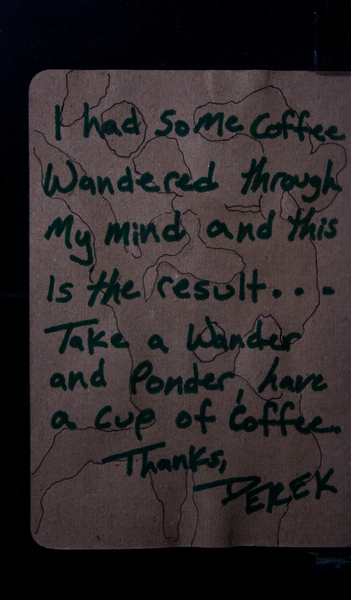 I had some Coffee
Wandered through
My mind and this
Is the result....
Take a Wander
and Ponder, have
a Cup of Coffee.
Thanks,
DEREK